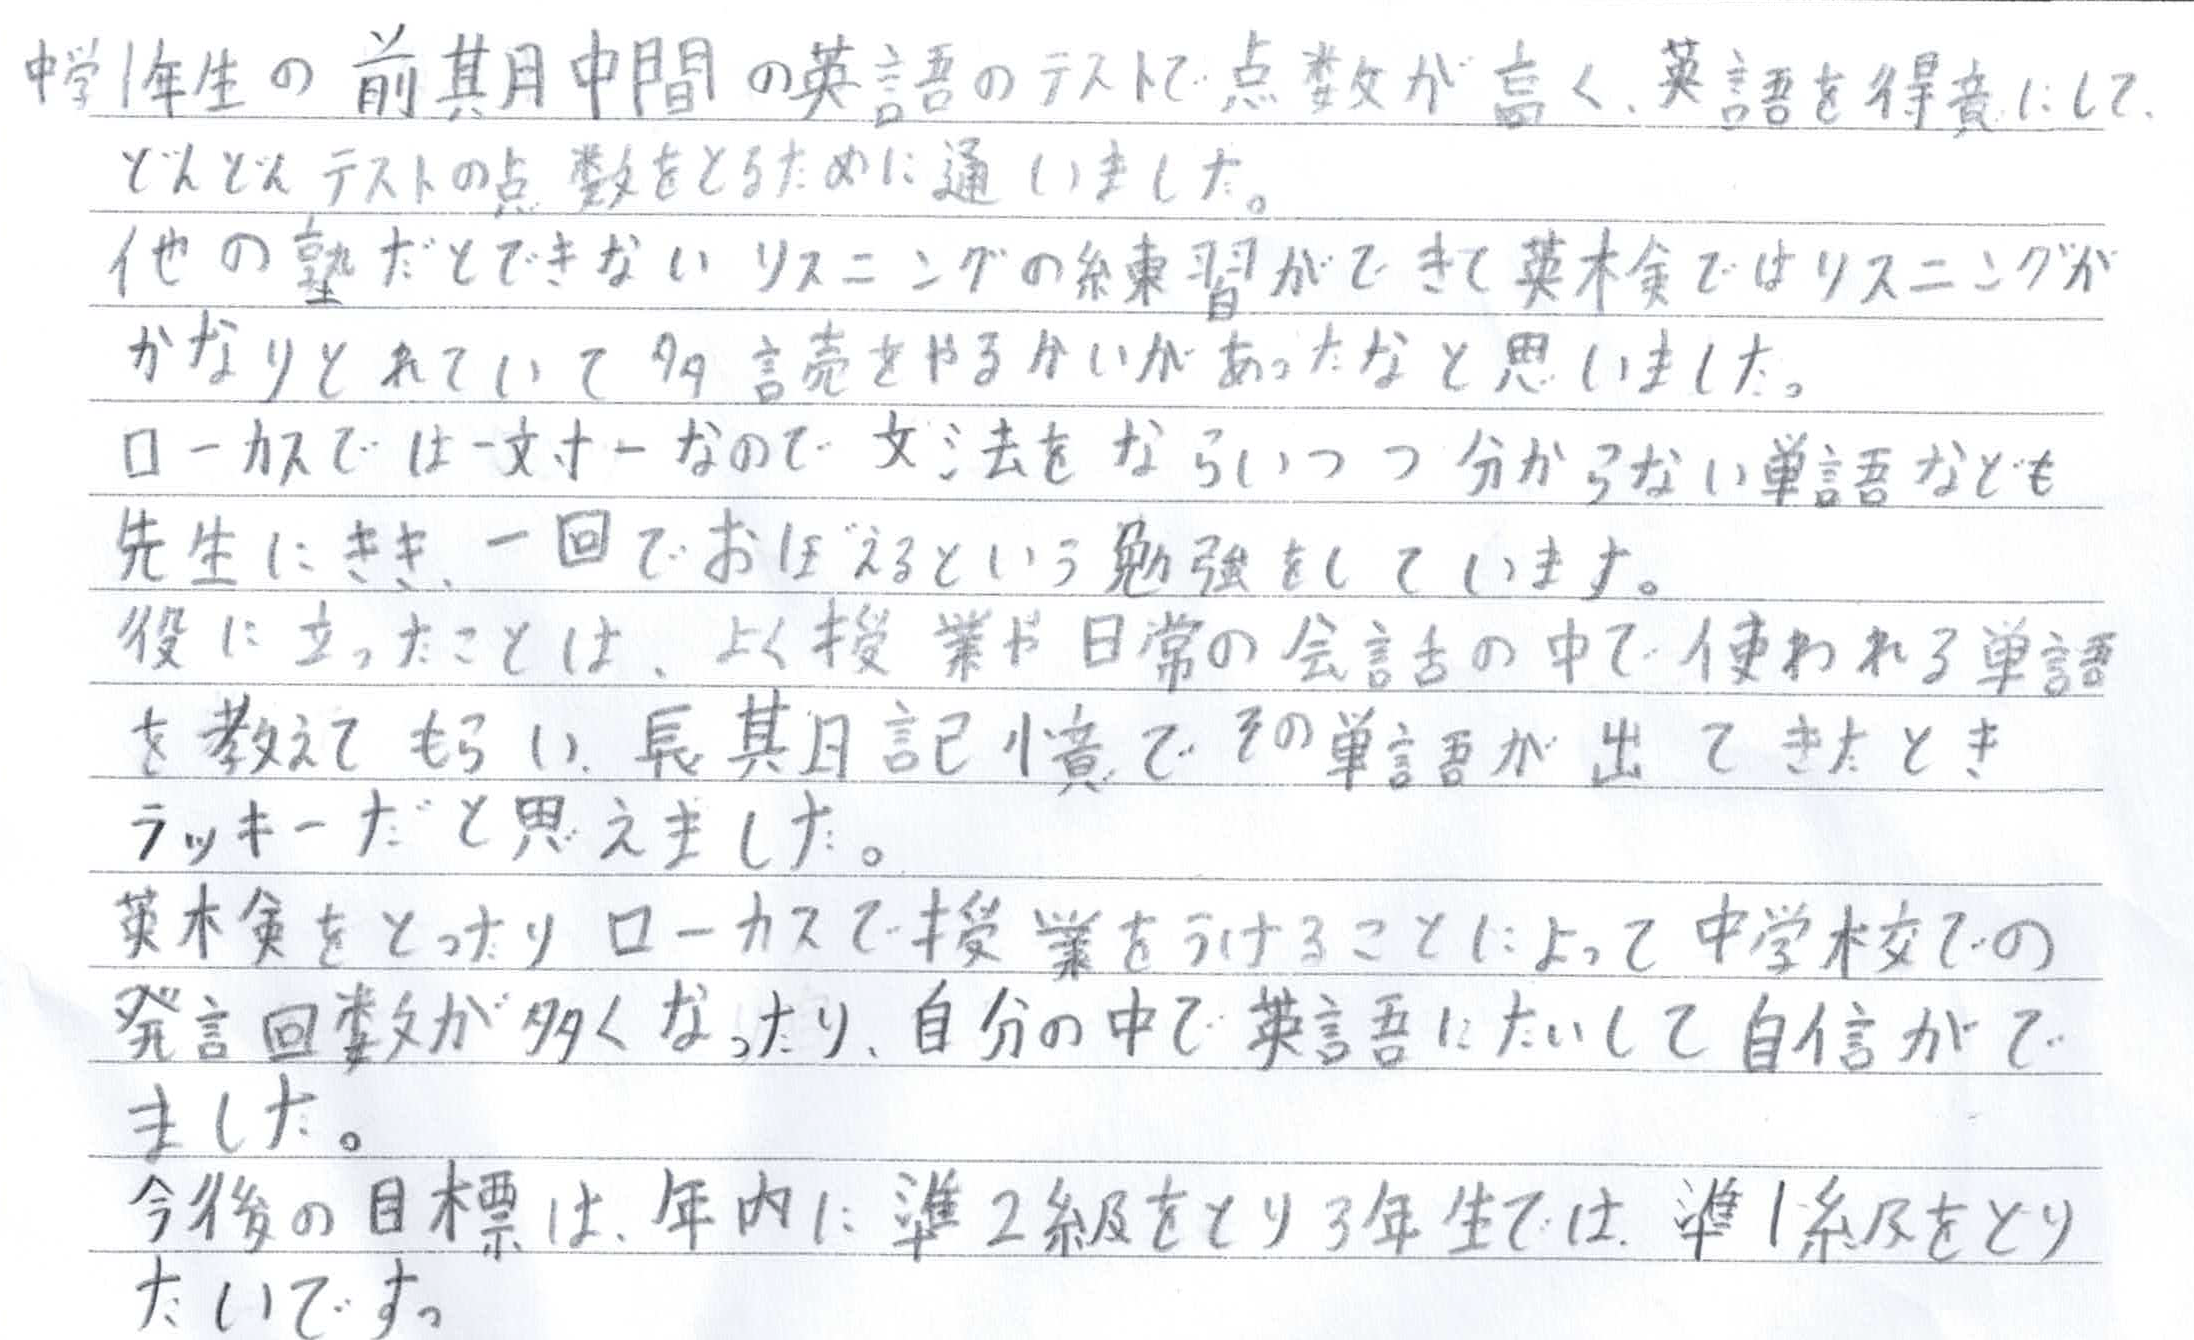 中学1年生の前期中間の英語のテストで点数が高く、英語を得意にして、
どんどんテストの点数をとるために通いました。
他の塾だとできないリスニングの練習ができて英検ではリスニングが
かなりとれていて多読をやるかいがあったなと思いました。
ローカスでは一対一なので文法をならいつつ分からない単語なども
先生にきき、一回でおぼえるという勉強をしています。
役に立ったことは、よく授業や日常の会話の中で使われる単語
を教えてもらい、長期記憶でその単語が出てきたとき
ラッキーだと思えました。
英検をとったりローカスで授業をうけることによって中学校での
発言回数が多くなったり、自分の中で英語にたいして自信がで
ました。
今後の目標は、年内に準2級をとり3年生では、準1級をとり
たいです。